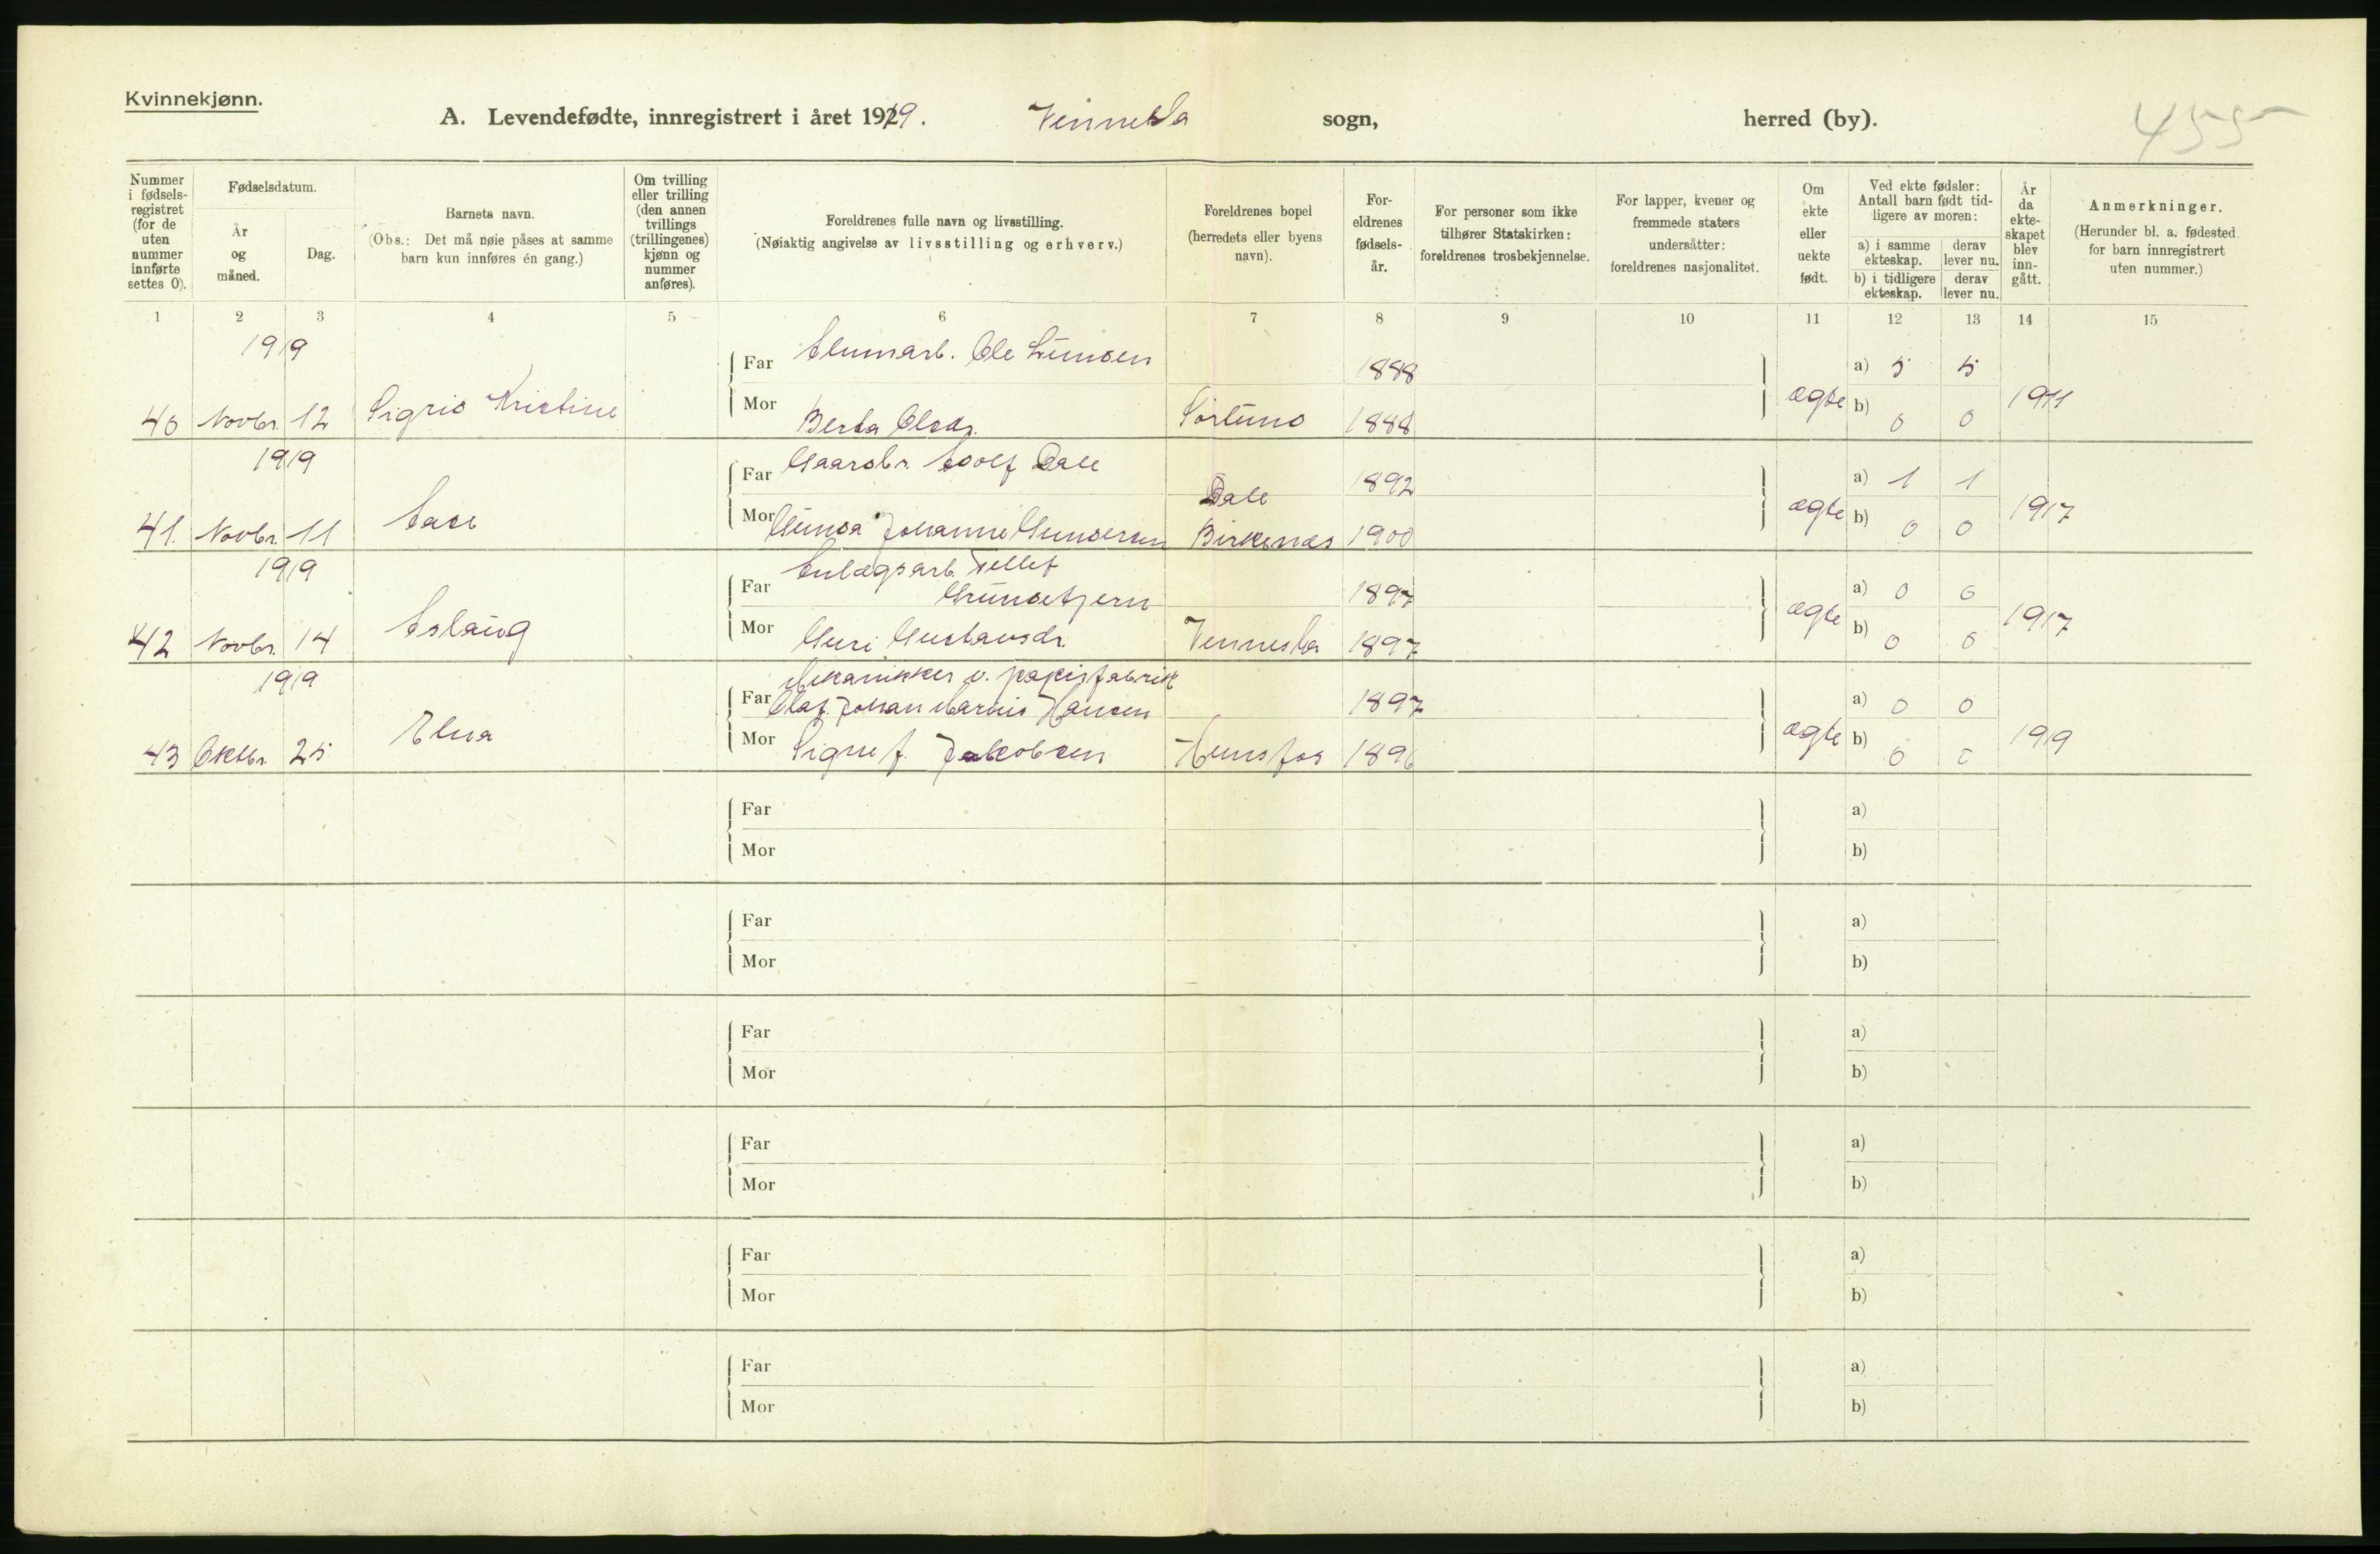 Kvinnekjønn.
A. Levendefødte, innregistrert i året 1919. Vennesla sogn, herred (by). 455
Nummer i fødselsregistret (for de uten nummer innførte settes 0).
Fødselsdatum.
År og måned.
Dag.
Barnets navn.
(Obs.: Det må nøie påses at samme barn kun innføres én gang.)
Om tvilling eller trilling (den annen tvillings (trillingenes) kjønn og nummer anføres).
Foreldrenes fulle navn og livsstilling.
(Nøiaktig angivelse av livsstilling og erhverv.)
Foreldrenes bopel (herredets eller byens navn).
Foreldrenes fødselsår.
For personer som ikke tilhører Statskirken: foreldrenes trosbekjennelse.
For lapper, kvener og fremmede staters undersåtter: foreldrenes nasjonalitet.
Om ekte eller uekte født.
Ved ekte fødsler: Antall barn født tidligere av moren:
a) i samme ekteskap. derav lever nu.
b) i tidligere ekteskap. derav lever nu.
År da ekteskapet blev inngått.
Anmerkninger.
(Herunder bl. a. fødested for barn innregistrert uten nummer.)
1 2 3 4 5 6 7 8 9 10 11 12 13 14 15
1919
Far Alumarb. Ole Lunden 1888 a) 5 5
40 Novbr. 12 Sigrid Kristine Mor Berta Olsdr. Sørlund 1888 ægte b) 0 0 1911
1919
Far Gaardbr. Adolf Dale Dale 1892 a) 1 1
41. Novbr. 11 Aase Mor Gunda Johanne Gundersen Birkenæs 1900 ægte b) 0 0 1917
1919
Far Anlægsarb. Tellef
Grundetjern 1897 a) 0 0
42 Novbr. 14 Aslaug Mor Guri Gustavsdr. Vennesla 1897 ægte b) 0 0 1917
1919
Mekanikker v. papirfabrik
Far Olaf Johan Marius Hansen 1897 a) 0 0
43 Oktbr. 25 Elna Mor Signe f. Jakobsen Hunsfos 1896 ægte b) 0 0 1919
Far a)
Mor b)
Far a)
Mor b)
Far a)
Mor b)
Far a)
Mor b)
Far a)
Mor b)
Far a)
Mor b)